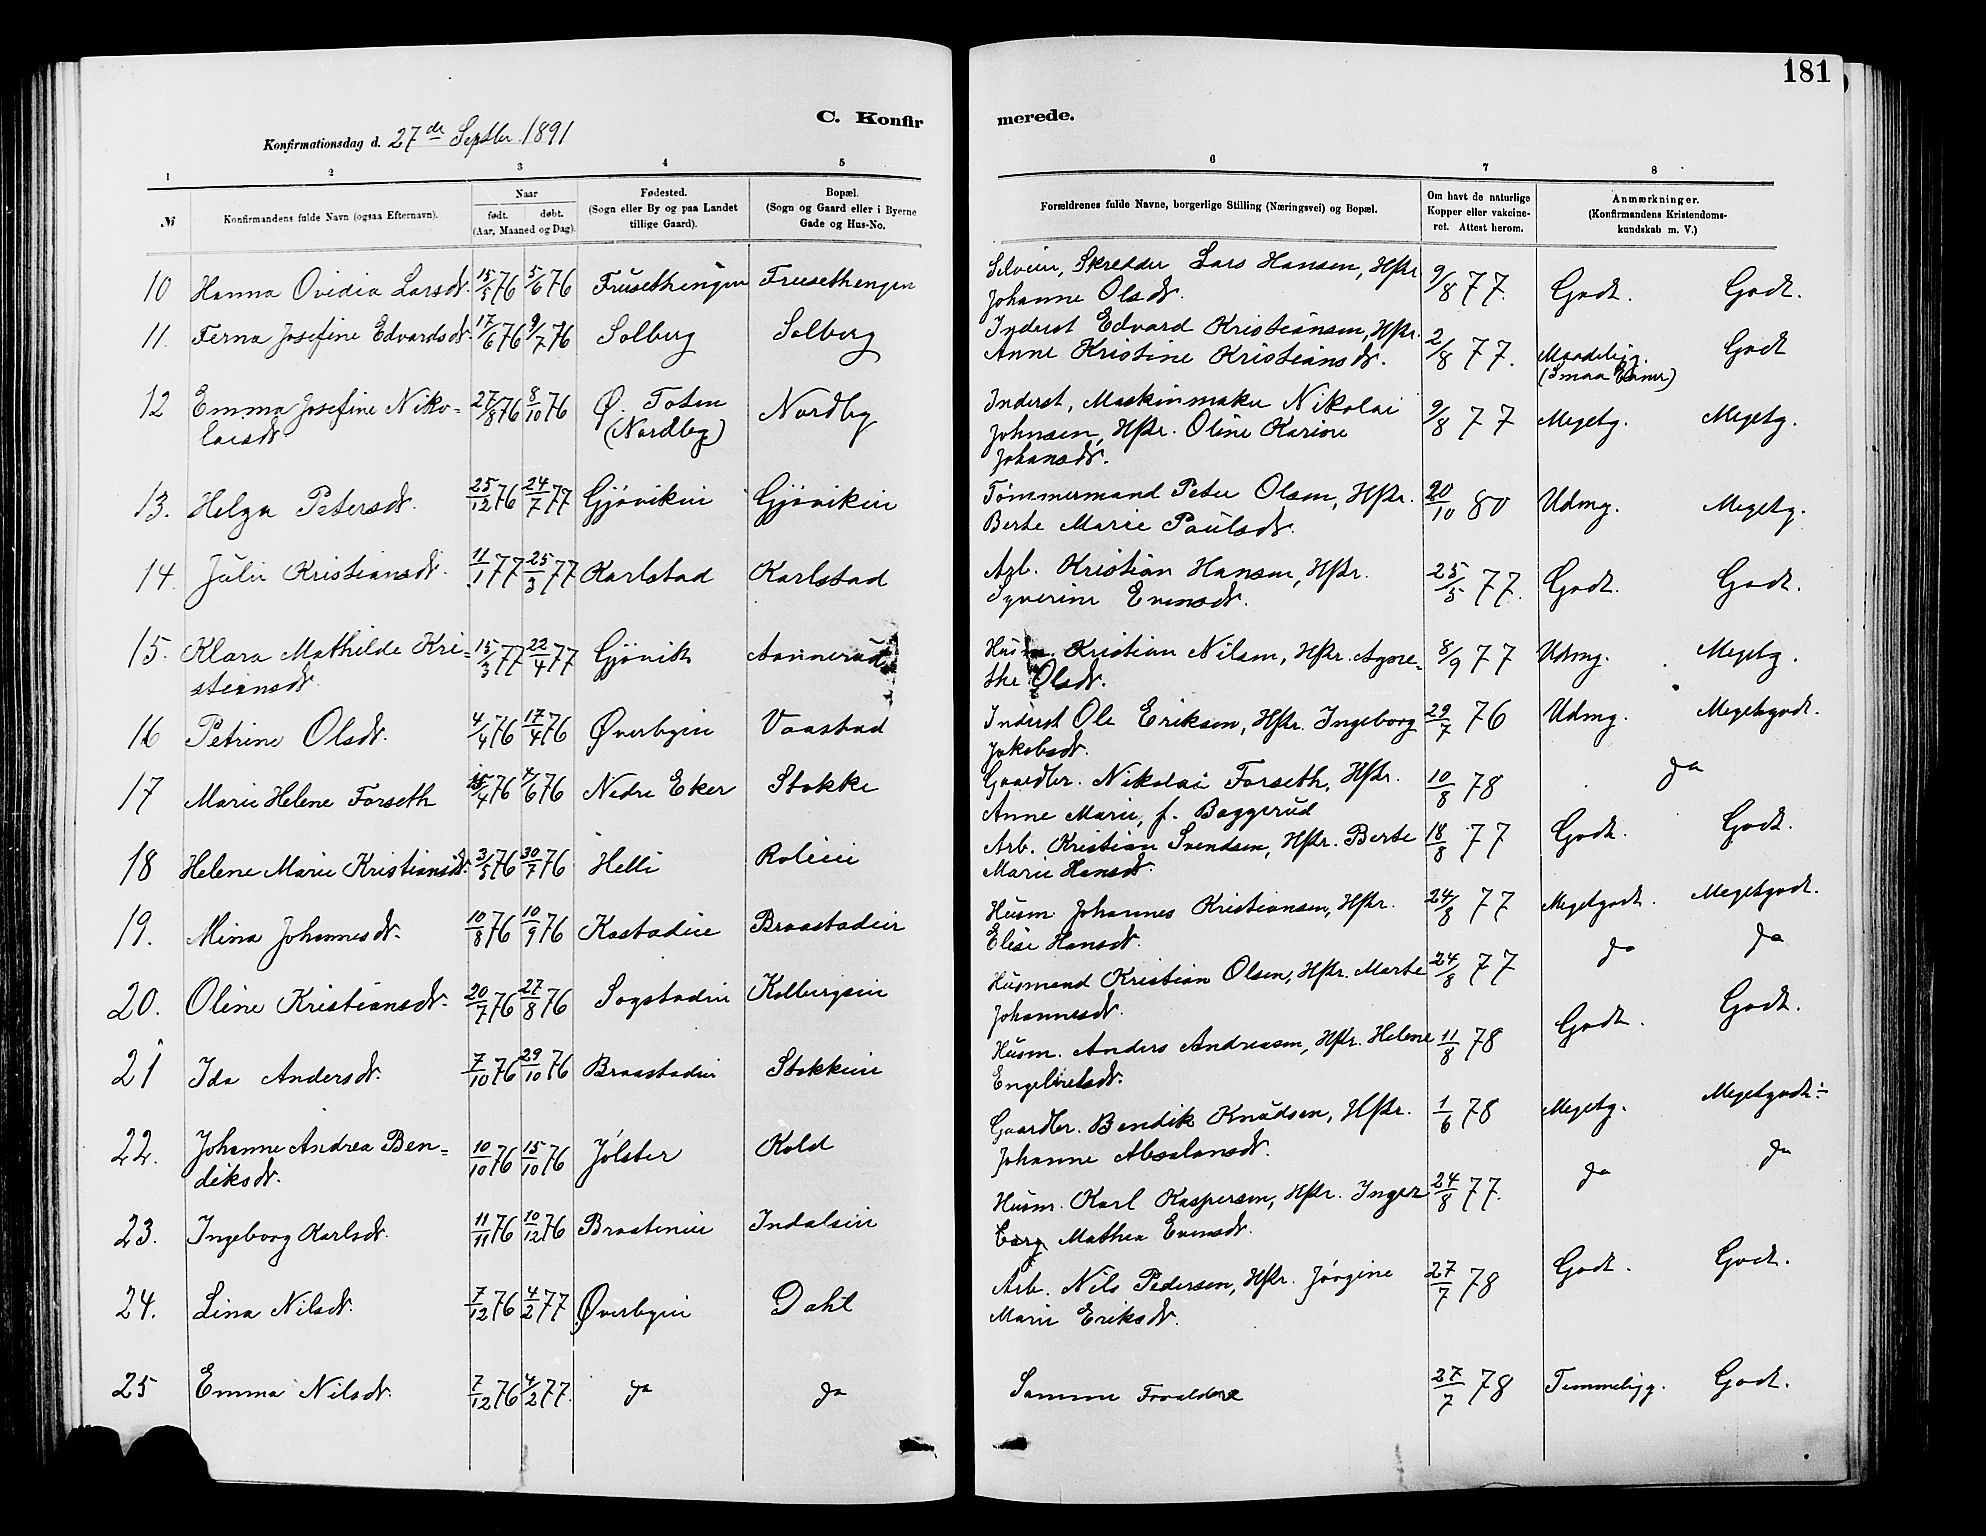 181
C. Konfirmerede.
Konfirmationsdag d. 27de Septbr. 1891
1 2 3 4 5 6 7 8
№ Konfirmandens fulde Navn (ogsaa Efternavn). Naar født. døbt. (Aar, Maaned og Dag). Fødested. (Sogn eller By og paa Landet tillige Gaard). Bopæl. (Sogn og Gaard eller i Byerne Gade og Hus-No. Forældrenes fulde Navne, borgerlige Stilling (Næringsvei) og Bopæl. Om havt de naturlige Kopper eller vakcineret. Attest herom. Anmærkninger. (Konfirmandens Kristendomskundskab m. V.)
10 Hanna Ovidia Larsdt. 15/5 76 5/6 76 Frusethengen Frusethengen Selveier, Skredder Lars Hansen, Hstr. 9/8 77. Godt. Godt.
Johanne Olsdt.
11. Ferna Josefine Edvardsdt. 17/6 76 9/7 76 Solberg Solberg Inderst Edvard Kristiansen, Hstr. 2/8 77. Maadeligg. Godt
Anne Kristine Kristiansdt. (Smaa Evner)
12 Emma Josefine Niko= 27/8 76 8/10 76 Ø. Toten Nordby Inderst, Maskinmaker Nikolai 9/8 77 Megetg. Megetg.
laisdt (Nordby) Johnsen, Hstr. Oline Karine
Johansdt.
13. Helga Petersdt. 25/12 76 24/7 77 Gjøvikeie Gjøvikeie Tømmermand Peter Olsen, Hstr. 20/10 80 Udmg. Megetg.
Berte Marie Paulsdt.
14. Julie Kristiansdt. 11/1 77 25/3 77 Karlstad Karlstad Arb. Kristian Hansen, Hstr. 25/5 77. Godt. Godt.
Syverine Evensdt.
15. Klara Mathilde Kri= 15/3 77 22/4 77 Gjøvik Aannerud Husm. Kristian Nilsen, Hstr. Agne= 8/9 77 Udmg. Megetg.
stiansdt. the Olsdt.
16 Petrine Olsdt. 4/4 76 17/4 76 Øverbyeie Vaastad Inderst Ole Eriksen, Hstr. Ingeborg 29/7 76 Udmg. Megetgodt.
Jakobsdt.
17 Marie Helene Forseth 15/4 76 4/6 76 Nedre Eker Stokke Gaardbr. Nikolai Forseth, Hstr. 10/8 78 Do
Anne Marie, f. Baggerud
18 Helene Marie Kristiansdt. 3/5 76 30/7 76 Helli Roleie Arb. Kristian Svendsen, Hstr. Berte 18/8 77 Godt. Godt.
Marie Hansdt.
19. Mina Johannesdt. 10/8 76 10/9 76 Kastadeie Braastadeie Husm Johannes Kristiansen, Hstr. 24/8 77 Megetgodt. Megetgodt.
Elise Hansdt.
20. Oline Kristiansdt. 20/7 76 27/8 76 Sogstadeie Kolbergseie Husmand Kristian Olsen, Hstr. Marte 24/8 77 Do Do
Johannesdt.
21 Ida Andersdt. 7/10 76 29/10 76 Braastadeie Stokkeie Husm. Anders Andreasen, Hstr. Helene 11/8 78 Godt. Godt.
Engebretsdt.
22. Johanne Andrea Ben= 10/10 76 15/10 76 Jølster Kold Gaardbr. Bendik Knudsen, Hstr. 1/6 78 Megetg. Megetgodt÷
diksdt. Johanne Absalonsdt.
23. Ingeborg Karlsdt. 11/11 76 10/12 76 Braateneie Indalseie Husm. Karl Kaspersen, Hstr. Inge= 24/8 77. Do Do
borg Mathea Evensdt.
24. Lina Nilsdt. 7/12 76 4/2 77 Øverbyeie Dahl Arb. Nils Pedersen, Hstr. Jørgine 27/7 78 Godt. Godt.
Marie Eriksdt.
25 Emma Nilsdt. 7/12 76 4/2 77. Do Do Samme Forældre 27/7 78 Temmeligg. Godt.